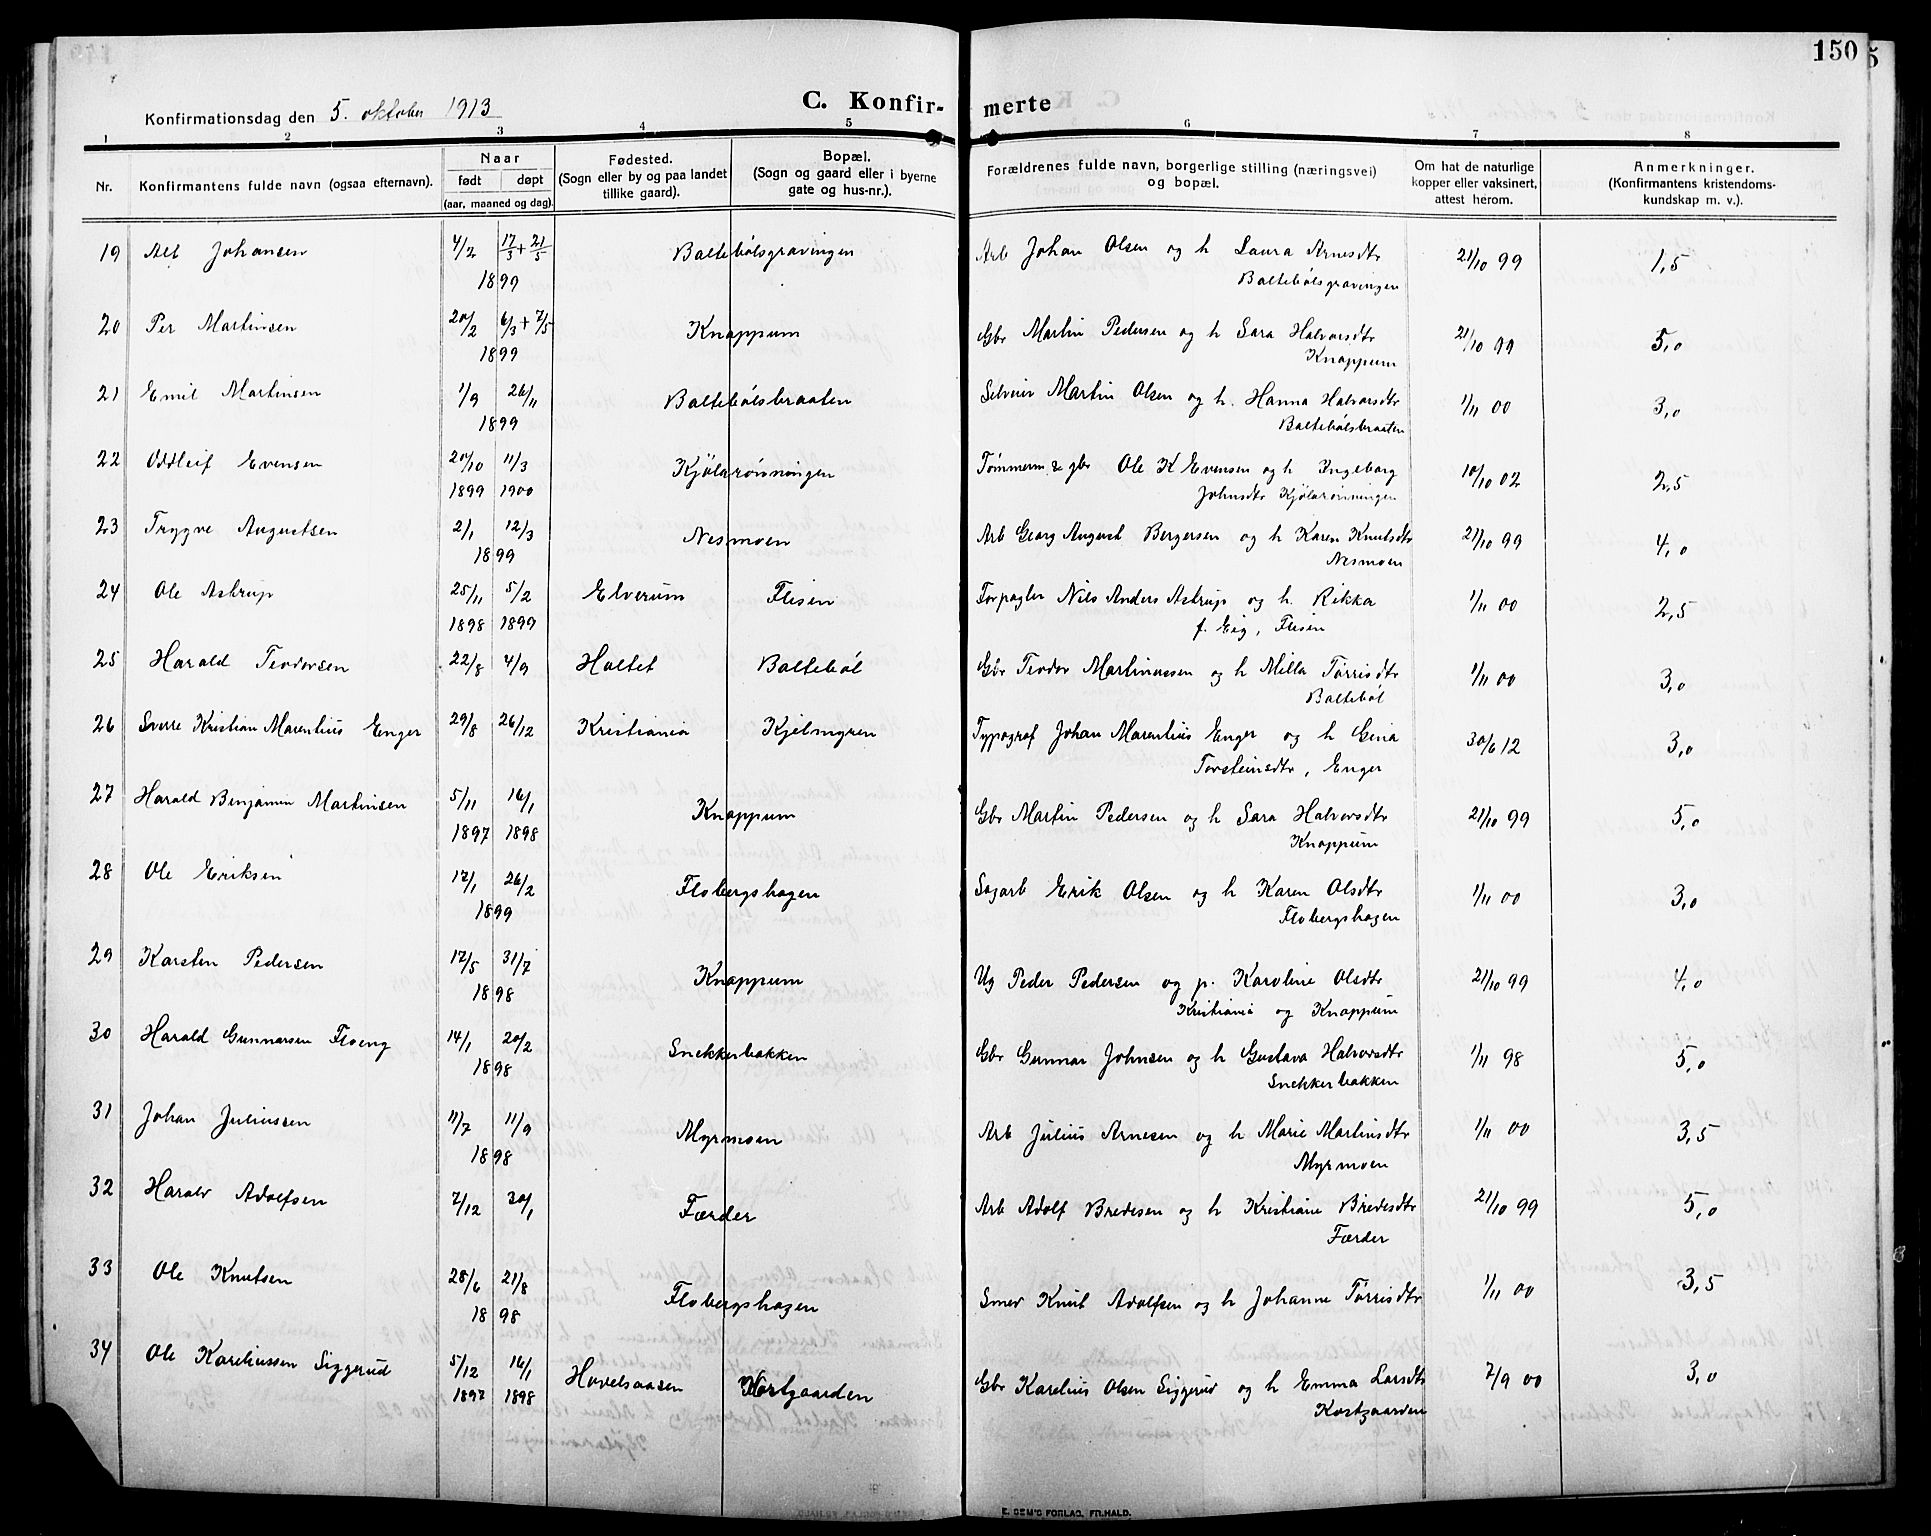 150
Konfirmationsdag den 5. oktober 1913
C. Konfir- merte
1 2 3 4 5 6 7 8
Nr. Konfirmantens fulde navn (ogsaa efternavn). Naar født døpt (aar, maaned og dag). Fødested. (Sogn eller by og paa landet tillike gaard). Bopæl. (Sogn og gaard eller i byerne gate og hus-nr.). Forældrenes fulde navn, borgerlige stilling (næringsvei) og bopæl. Om hat de naturlige kopper eller vaksinert, attest herom. Anmerkninger. (Konfirmantens kristendoms- kundskap m. v.).
19 Alf Johansen 4/2 17/3 + 21/5 Baltebölsgravingen Arb Johan Olsen og h Laura Arnesdtr 21/10 99 1,5
1899 Baltebölsgravingen
20 Per Martinsen 20/2 6/3 + 7/5 Knappum Gbr Martin Pedersen og h Sara Halvorsdtr 21/10 99 5,0
1899 Knappum
21 Emil Martinsen 1/9 26/11 Baltebölsbraaten Selveier Martin Olsen og h. Hanna Halvorsdtr 1/11 00 3,0
1899 Baltebölsbraaten
22 Oddleif Evensen 20/10 11/3 Kjölarönningen Tömmerm. & gbr Ole K Evensen og h Ingeborg 10/10 02 2,5
1899 1900 Johnsdtr Kjölarönningen
23 Trygve Augustsen 2/1 12/3 Nesmoen Arb Georg August Bergersen og h Karen Knutsdtr 21/10 99 4,0
1899 Nesmoen
24 Ole Astrup 25/11 5/2 Elverum Flisen Forpagter Nils Anders Astrup og h. Rikka 1/11 00 2,5
1898 1899 f. Eig, Flisen
25 Harald Teodorsen 22/8 4/9 Haltet Balteböl Gbr Teodor Martinussen og h Milla Törrisdtr 1/11 00 3,0
Balteböl
26 Sverre Kristian Marentius Enger 29/8 26/12 Kristiania Kjelmyren Typograf Johan Marentius Enger og h Gina 30/6 12 3,0
Torsteinsdtr, Enger
27 Harald Benjamin Martinsen 5/11 16/1 Knappum Gbr Martin Pedersen og h Sara Halvorsdtr 21/10 99 5,0
1897 1898 Knappum
28 Ole Eriksen 17/1 26/2 Flobergshagen Sagarb Erik Olsen og h Karen Olsdtr 1/11 00 3,0
1899 Flobergshagen
29 Karsten Pedersen 17/5 31/7 Knappum Ug Peder Pedersen og p. Karoline Olsdtr 21/10 99 4,0
1898 Kristiania og Knappum
30 Harald Gunnarsen Floeng 14/1 20/2 Snekkerbakken Gbr Gunnar Johnsen og h Gustava Halvorsdtr 1/11 98 5,0
1898 Snekkerbakken
31 Johan Juliussen 11/7 11/9 Myrmoen Arb Julius Arnesen og h Marie Martinsdtr 1/11 00 3,5
1898 Myrmoen
32 Harald Adolfsen 7/12 30/1 Færder Arb Adolf Bredesen og h Kristiane Bredesdtr 21/10 99 5,0
Færder
33 Ole Knutsen 28/6 21/8 Flobergshagen Smed Knut Adolfsen og h Johanne Törrisdtr 1/11 00 3,5
1898
34 Ole Kareliussen Siggerud 5/12 16/1 Hovelsaasen Kostgaarden Gbr Karelius Olsen Siggerud og h Emma Larsdtr 7/9 00 3,0
1897 1898 Kostgaarden
E. SEM'S FORLAG, FR.HALD.